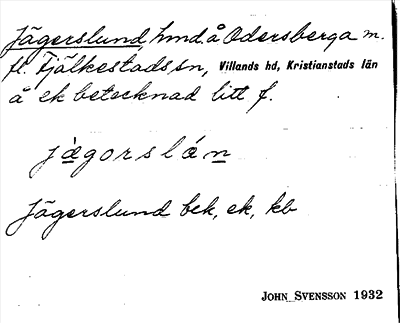 Jägerslund, hmd. å Odersberga m.
fl. Fjälkestads sn, Villands hd, Kristianstads län
å ek betecknad litt f.
jägorslán
Jägerslund bek, ek, kb
JOHN SVENSSON 1932